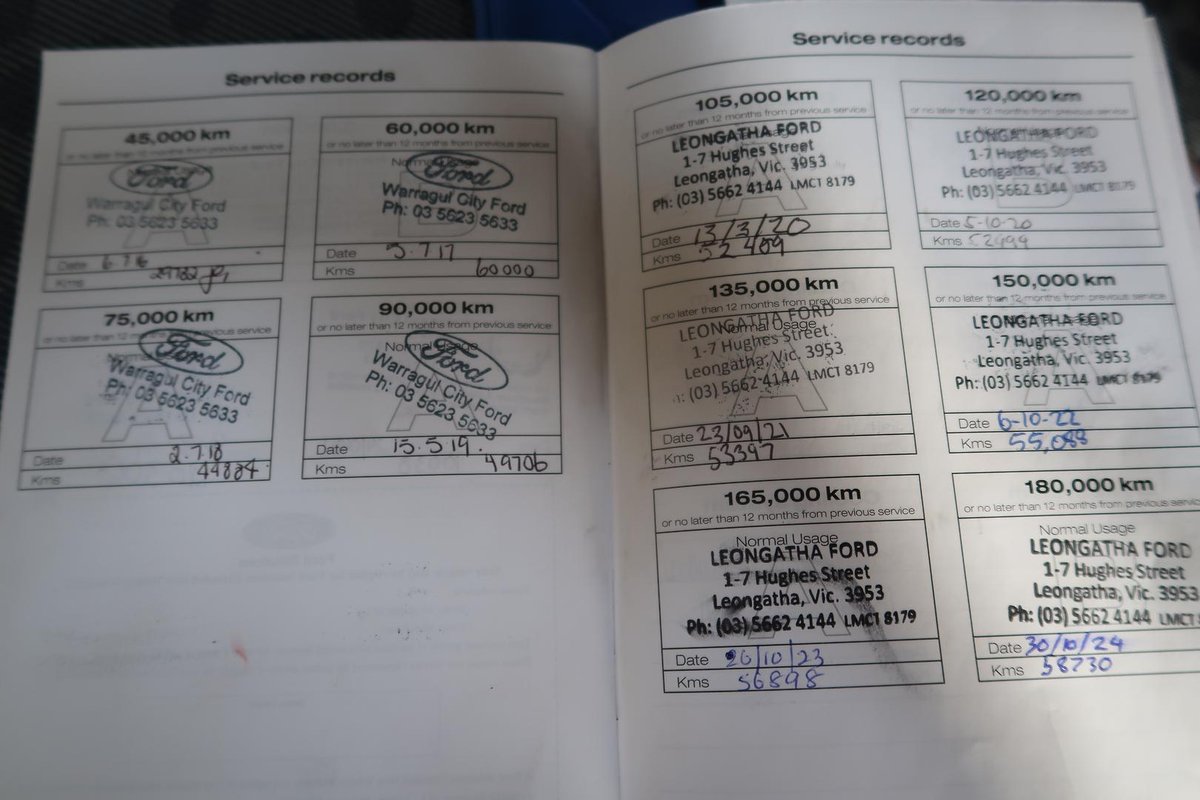 Service records
45,000 km
or no later than 12 months from previous service
Ford
Warragul City Ford
Ph. 03 5623 5633
A
Date 6.7.16
Kms
60,000 km
or no later than 12 months from previous service
Ford
Warragul City Ford
Ph: 03 5623 5633
Date 3.7.17
Kms 60000
75,000 km
or no later than 12 months from previous service
Ford
Warragul City Ford
Ph: 03 5623 5633
A
Date 2.7.18
Kms 44884
90,000 km
or no later than 12 months from previous service
Normal Usage
Ford
Warragul City Ford
Ph: 03 5623 5633
Date 15.5.19.
Kms 49706
Service records
105,000 km
or no later than 12 months from previous service
LEONGATHA FORD
1-7 Hughes Street
Leongatha, Vic. 3953
Ph: (03) 5662 4144 LMCT 8179
Date 13/3/20
Kms 52409
120,000 km
or no later than 12 months from previous service
LEONGATHA FORD
1-7 Hughes Street
Leongatha, Vic. 3953
Ph: (03) 5662 4144 LMCT 8179
Date 5-10-20
Kms 52999
135,000 km
or no later than 12 months from previous service
Normal Usage
LEONGATHA FORD
1-7 Hughes Street
Leongatha, Vic. 3953
(03) 5662 4144 LMCT 8179
Date 23/09/21
Kms 53397
150,000 km
or no later than 12 months from previous service
LEONGATHA FORD
1-7 Hughes Street
Leongatha, Vic. 3953
Ph: (03) 5662 4144 LMCT 8179
Date 6-10-22
Kms 55,088
165,000 km
or no later than 12 months from previous service
Normal Usage
LEONGATHA FORD
1-7 Hughes Street
Leongatha, Vic. 3953
Ph: (03) 5662 4144 LMCT 8179
Date 26/10/23
Kms 56898
180,000 km
or no later than 12 months from previous
Normal Usage
LEONGATHA FORD
1-7 Hughes Street
Leongatha, Vic. 3953
Ph: (03) 5662 4144 LMCT
Date 30/10/24
Kms 58730